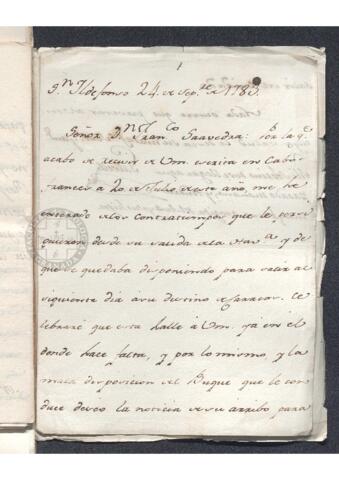 1
Sn. Ildefonso 24. de Sepre. de 1783.
Señor Dn. Franco. Saavedra: Por la qe.
acabo de recivir de Vm. escrita en Cabo
Frances a 20 de Julio de este año, me he
enterado de los contratiempos que le persi
guieron desde su salida de la Havana. y de
que se quedaba disponiendo para salir al
siguiente dia a su destino de Caracas. Ce
lebraré que esta halle à Vm. yá en el
donde hace falta, y por lo mismo, y la
mala disposicion del Buque que le con
duce deseo la noticia de su arribo para